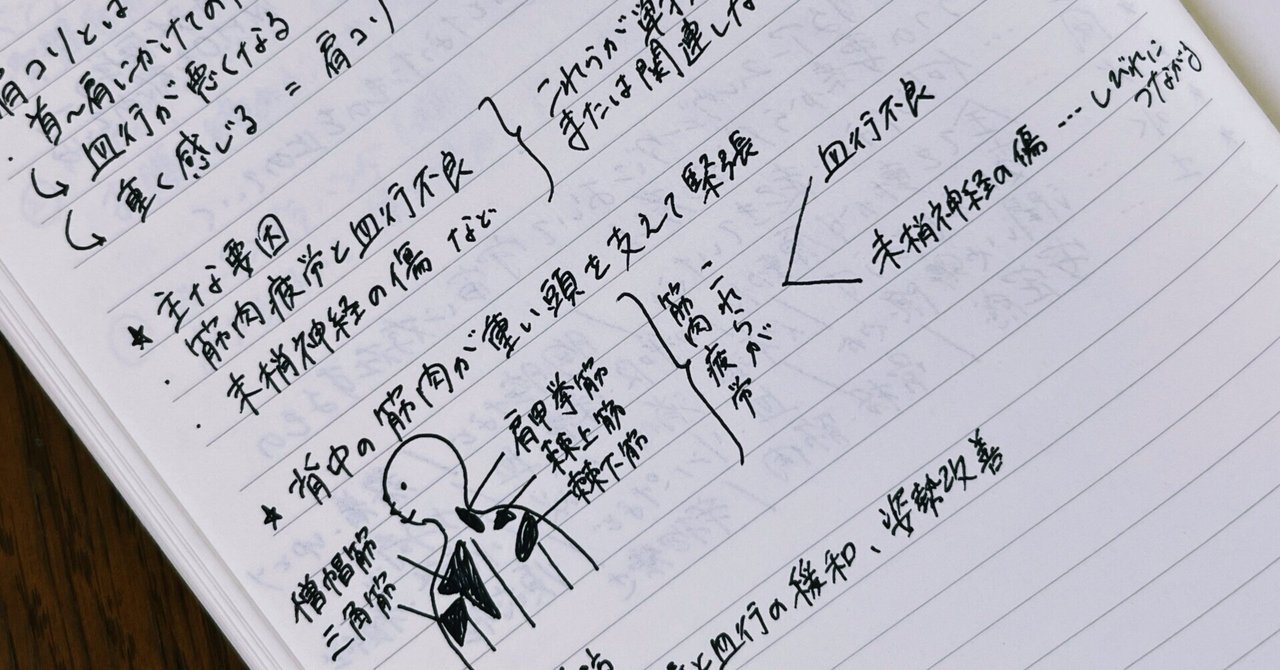 肩コリとは
・首〜肩にかけての
↳ 血行が悪くなる
↳ 重く感じる = 肩コリ
これらが単独
または関連しな
★ 主な要因
・筋肉疲労と血行不良
・末梢神経の傷 など
★ 背中の筋肉が重い頭を支えて緊張
肩甲挙筋
棘上筋
棘下筋
僧帽筋
三角筋
これらが
筋肉疲労
血行不良
末梢神経の傷 … しびれに
つながる
と血行の緩和、姿勢改善